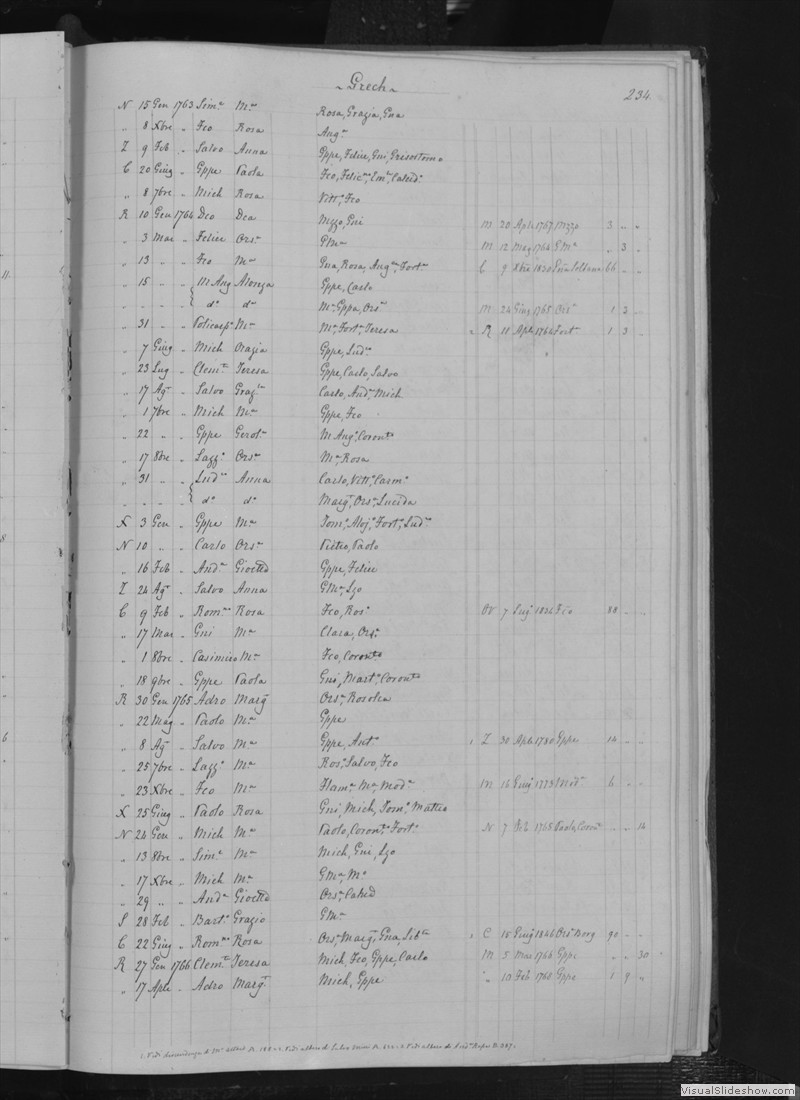 Grech
234.
N 15 Gen 1763 Sim.e M.a Rosa, Grazia, Gna
" 8 Xbre " Fco Rosa Ang.a
Z 9 Feb " Salvo Anna Gppe, Felice, Gni, Gresostomo
C 20 Giug " Gppe Paola Fco, Felic.a,
" 8 7bre " Mich Rosa Vitt.a, Fco
R 10 Gen 1764 Deo Dea Mzzo, Gni m 20 Aple 1767 Mzzo 3 " "
" 3 Mar " Felice Ors.a GM.a m 12 Mag 1764 GM.a " 3 "
" 13 " " Fco M.a Gna, Rosa, Ang.ca, Fort.a C 9 Xbre 1830 66 " "
" 15 " " M Ang Alonza Gppe, Carlo
" " " " d.o d.a M.a Gppa, Ors.a m 24 Giug 1765 Ors.a 1 3 "
" 31 " " Policarp.o M.a M.a, Fort.a, Teresa R 11 Aple 1766 Fort.a 1 3 "
" 7 Giug " Mich Orazia Gppe, Lud.a
" 23 Lug " Clem.te Teresa Gppe, Carlo, Salvo
" 17 Ag.to " Salvo Graz.la Carlo, And.a, Mich
" 1 7bre " Mich M.a Gppe, Fco
" 22 " " Gppe Gerol.a M Ang.a, Coron.ta
" 17 8bre " Lazz.o Ors.a M.a Rosa
" 31 " " Lud.co Anna Carlo, Vitt.a, Carm.a
" " " " d.o d.a Marg.ta, Ors.a, Lucida
X 3 Gen " Gppe M.a Tom.o, Aloj.o, Fort.a, Lud.co
N 10 " " Carlo Ors.a Pietro, Paolo
" 16 Feb " And.a Gioetta Gppe, Felice
Z 24 Ag.to " Salvo Anna GM.a, Lzo
C 9 Feb " Rom.no Rosa Fco, Ros.a 7 Lug 1836 Fco 88 " "
" 17 Mar " Gni M.a Clara, Ors.a
" 1 8bre " Casimiro M.a Fco, Coron.ta
" 18 9bre " Gppe Paola Gni, Mart.o, Coron.to
R 30 Gen 1765 Adro Marg.ta Ors.a Rosolea
" 22 Mag " Paolo M.a Gppe
" 8 Ag.to " Salvo M.a Gppe, Ant.o Z 30 Aple 1780 Gppe 14 " "
" 25 7bre " Lazz.o M.a Ros.a, Salvo, Fco
" 23 Xbre " Fco M.a Flam.a, M.a, Mod.a m 16 Giug 1773 Mod.a 6 " "
X 25 Giug " Paolo Rosa Gni, Mich, Tom.o, Matteo
N 24 Gen " Mich M.a Paolo, Coron.to, Fort.a N 7 Feb 1765 Paolo, Coron.to " " 14
" 13 8bre " Sim.e M.a Mich, Gni, Lzo
" 17 Xbre " Mich M.a GM.a, M.o
" 29 " " And.a Gioetta Ors.a, Caled
S 28 Feb " Bart.o Grazio GM.a
C 22 Giug " Rom.no Rosa Ors.a, Marg.ta, Gna, Lib.ta C 15 Giug 1846 Ors.a Borg 90 " "
R 27 Gen 1766 Clem.te Teresa Mich, Fco, Gppe, Carlo m 5 Mar 1766 Gppe " " 30
" 17 Aple " Adro Marg.ta Mich, Gppe " 10 Feb 1768 Gppe 1 9 "
11
8
6
VisualSlideshow.com